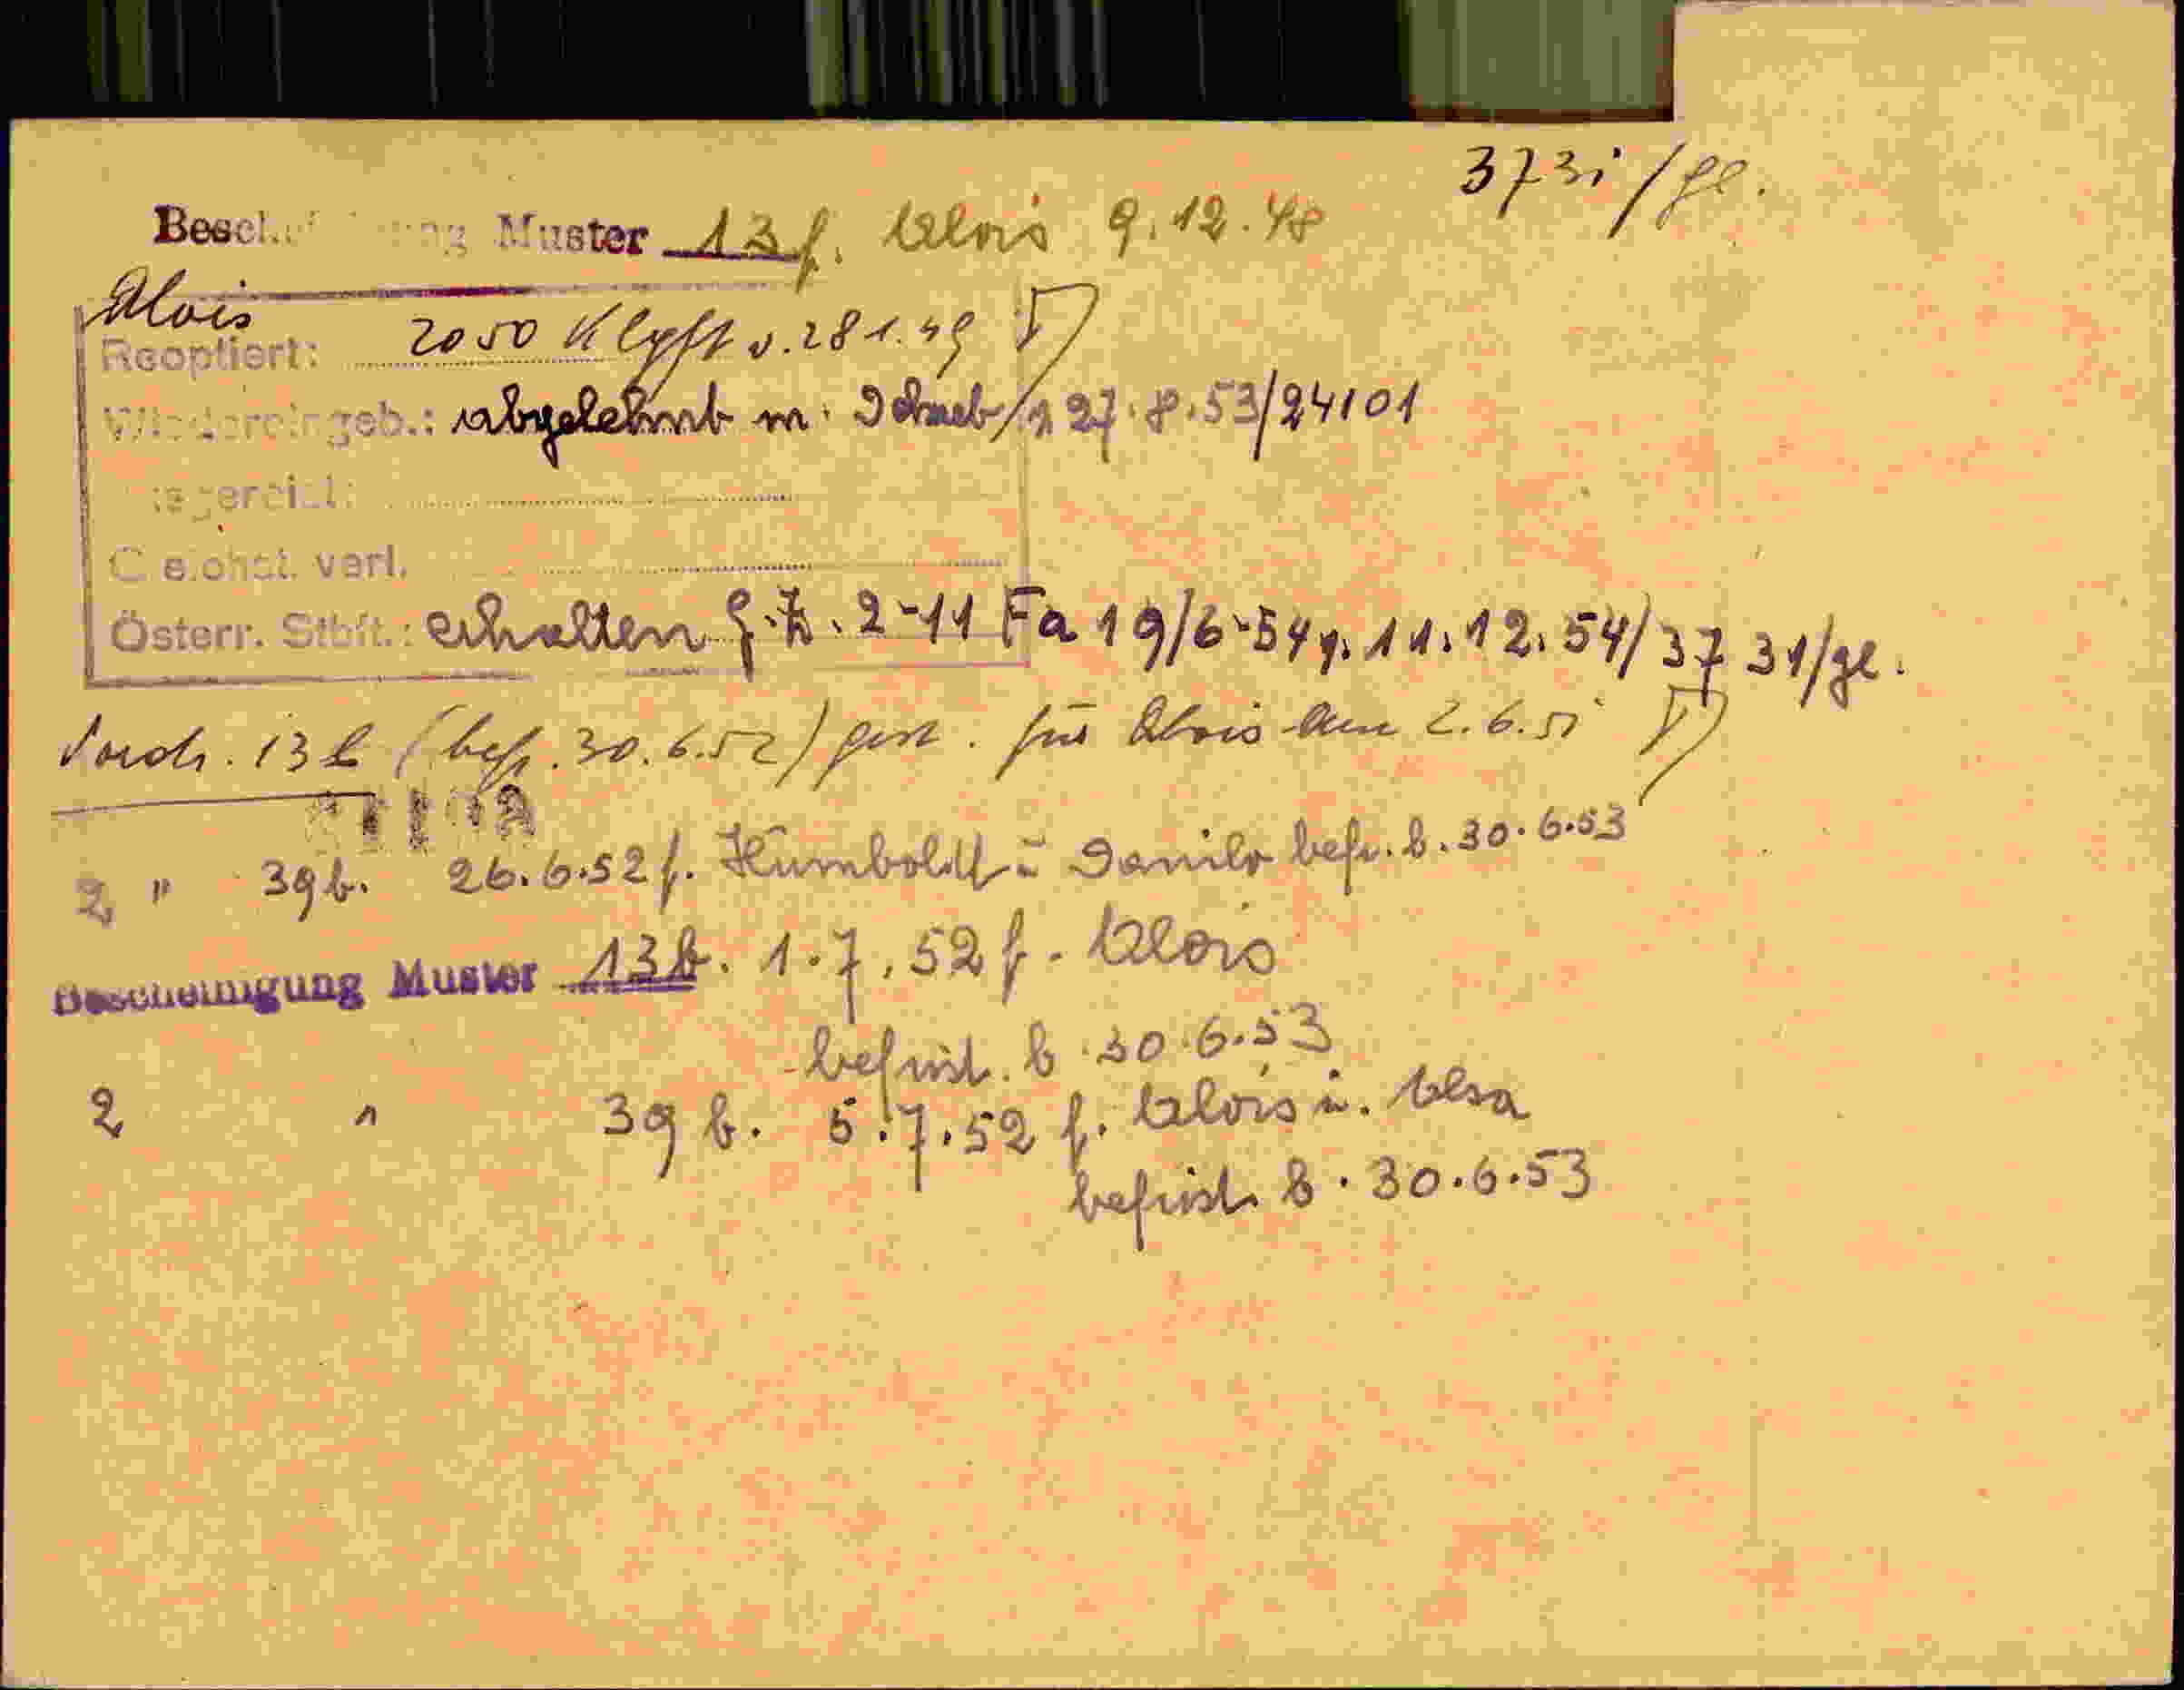 373i/ge.
Muster 13 f. Alois 9.12.48
Alois
Reoptiert: 2050 v. 28 1.49
Wiedereingeb.: abgelehnt m. 27.8.53/24101
Österr. Stbft.: erhalten G.Z. 2-11 Fa 19/6-54 v. 11.12.54/37 31/ge.
Vordr. 13 b (befr. 30.6.52) für Alois am 2.6.51
2 " 39 b. 26.6.52 f. Humboldt u Danilo befr. b. 30.6.53
Bescheinigung Muster 13 b. 1.7.52 f. Alois
befrist. b. 30.6.53
2 " 39 b. 5.7.52 f. Alois u. Elsa
befrist. b. 30.6.53